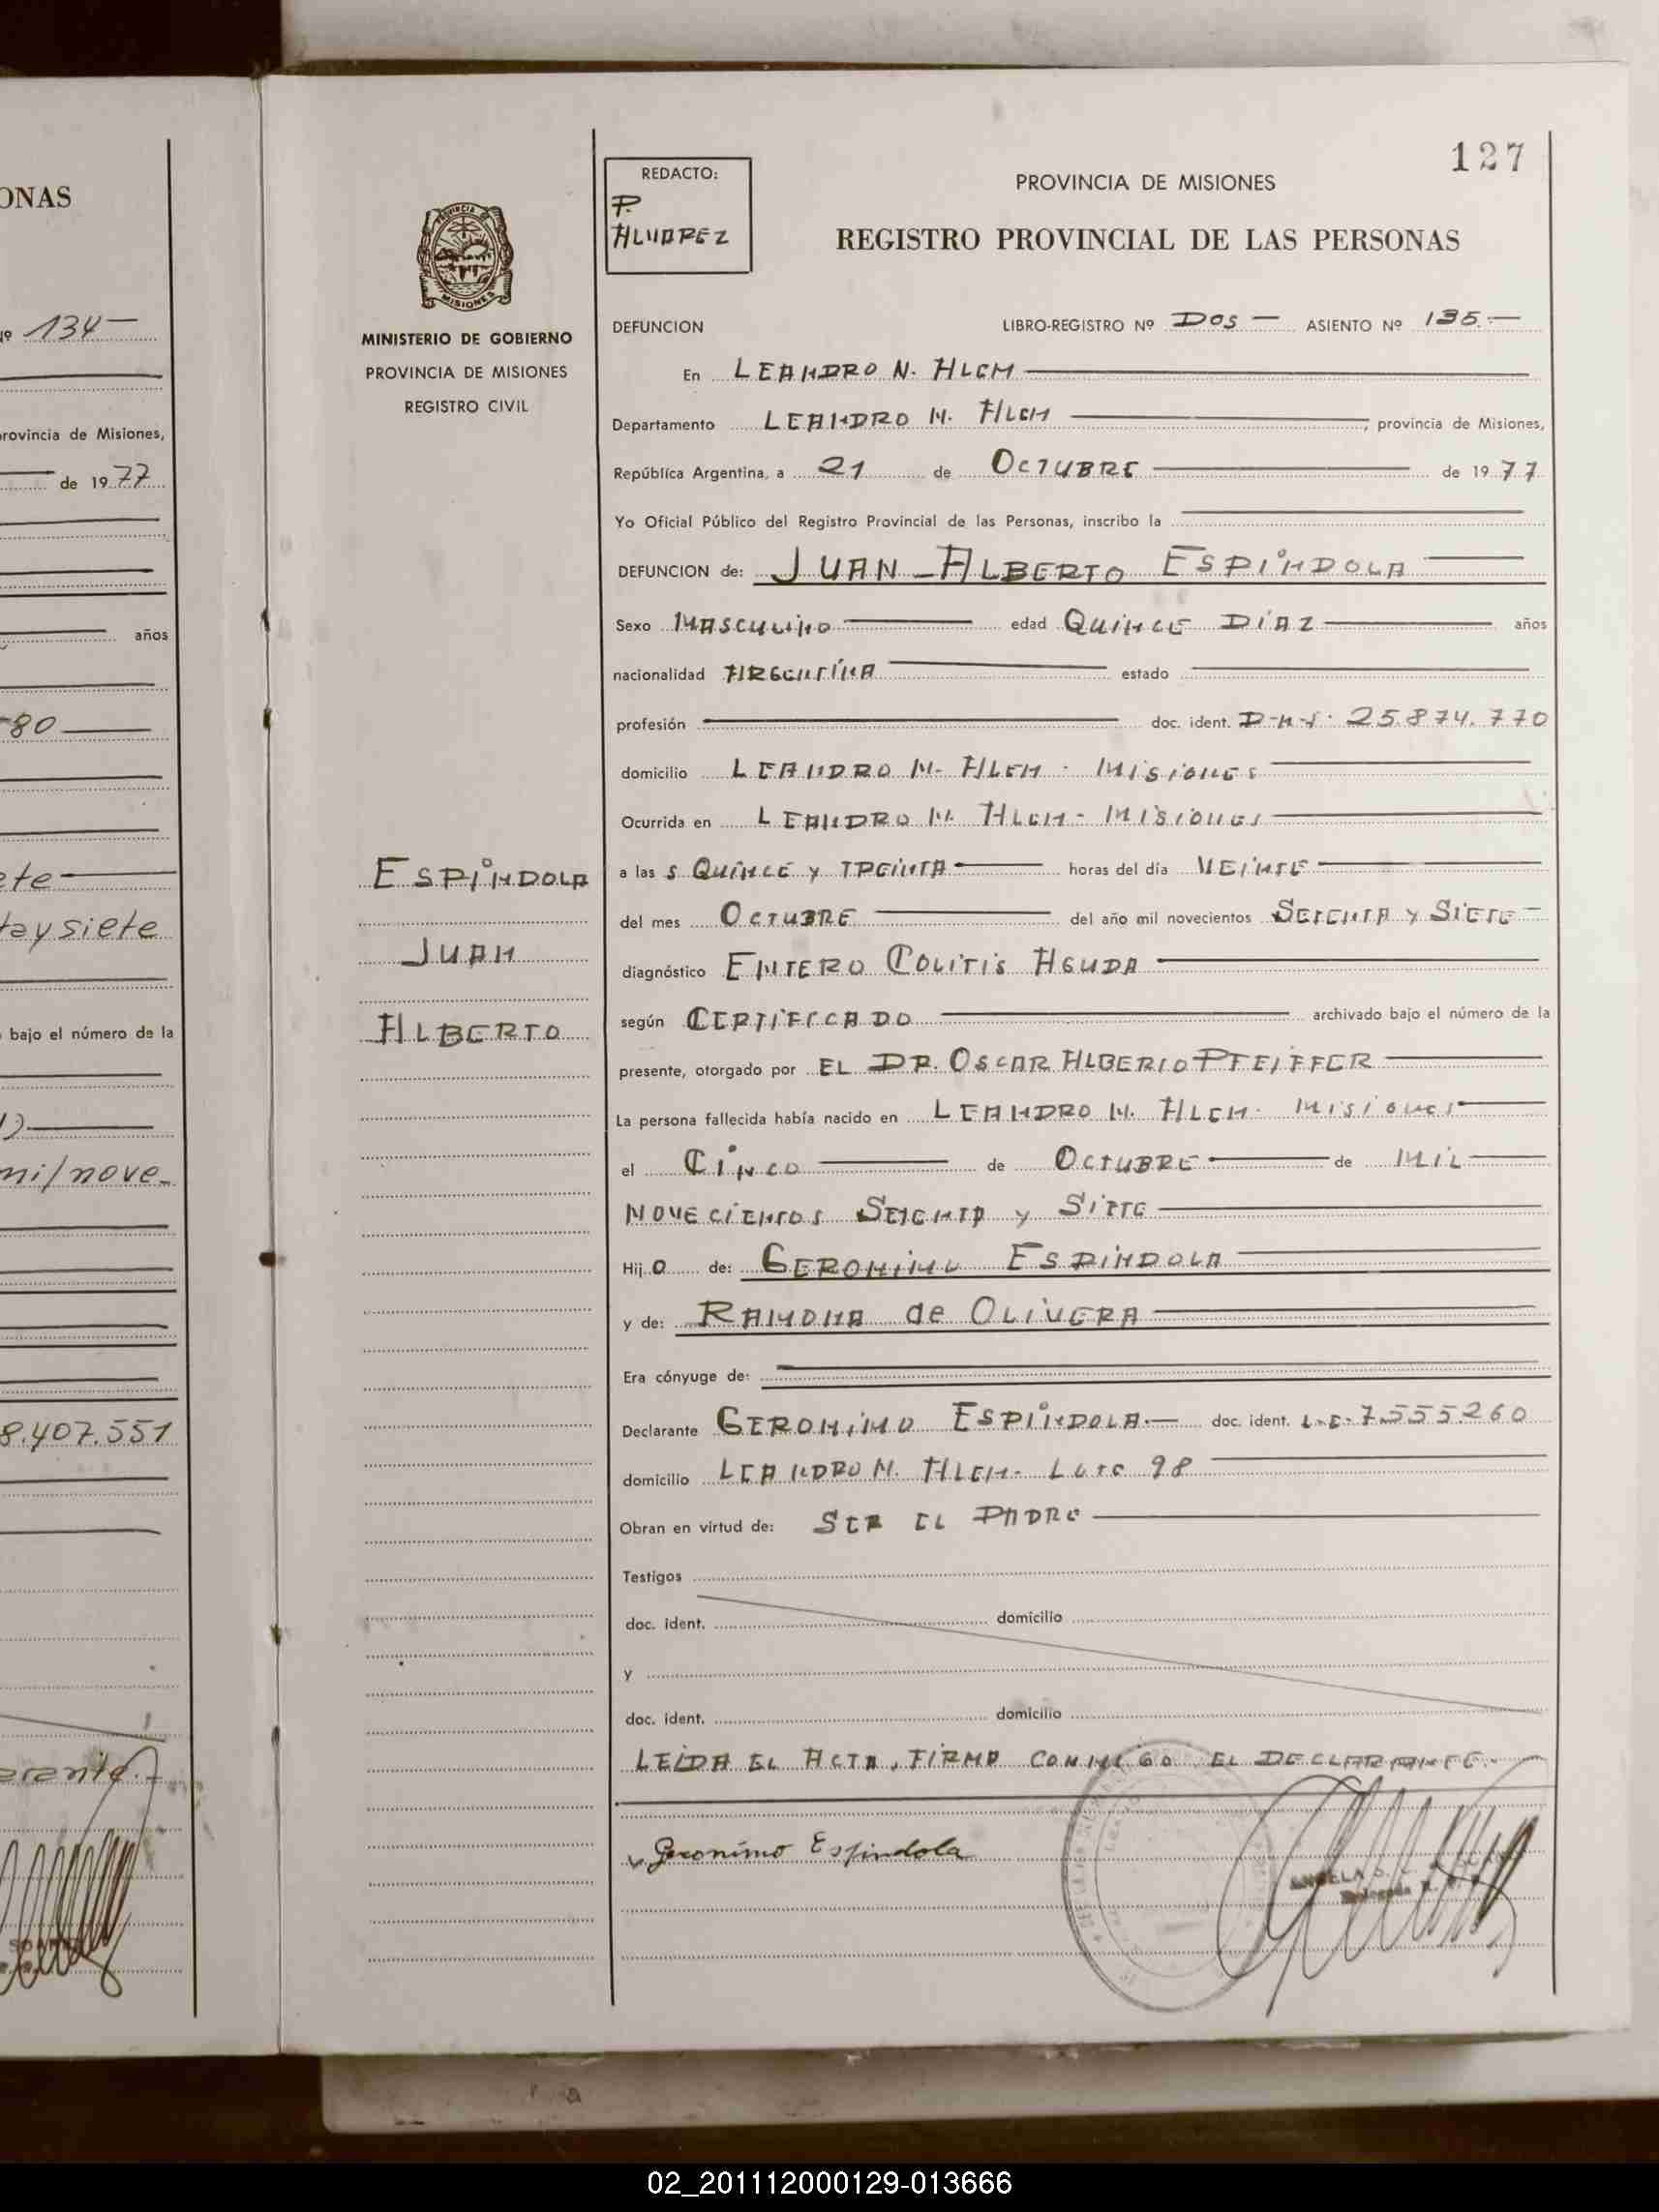 ONAS
Nº 134
provincia de Misiones,
de 1977
años
80
ete
tay siete
bajo el número de la
mil nove
8.407.551
MINISTERIO DE GOBIERNO
PROVINCIA DE MISIONES
REGISTRO CIVIL
ESPINDOLA
JUAN
ALBERTO
127
REDACTO:
P.
ALVAREZ
PROVINCIA DE MISIONES
REGISTRO PROVINCIAL DE LAS PERSONAS
DEFUNCION LIBRO-REGISTRO Nº DOS - ASIENTO Nº 135.-
En LEANDRO N. ALEM
Departamento LEANDRO N. ALEM, provincia de Misiones,
República Argentina, a 21 de OCTUBRE de 1977
Yo Oficial Público del Registro Provincial de las Personas, inscribo la
DEFUNCION de: JUAN ALBERTO ESPINDOLA
Sexo MASCULINO edad QUINCE DIAZ años
nacionalidad ARGENTINA estado
profesión doc. ident. D.N.I. 25.874.770
domicilio LEANDRO N. ALEM - MISIONES
Ocurrida en LEANDRO N. ALEM - MISIONES
a las s QUINCE y TREINTA horas del día VEINTE
del mes OCTUBRE del año mil novecientos SETENTA y SIETE
diagnóstico ENTERO COLITIS AGUDA
según CERTIFICADO archivado bajo el número de la
presente, otorgado por EL DR. OSCAR ALBERTO PFEIFFER
La persona fallecida había nacido en LEANDRO N. ALEM - MISIONES
el CINCO de OCTUBRE de MIL
NOVECIENTOS SETENTA y SIETE
Hij O de: GERONIMO ESPINDOLA
y de: RAMONA de OLIVERA
Era cónyuge de:
Declarante GERONIMO ESPINDOLA.- doc. ident. L.E. 7.555.260
domicilio LEANDRO N. ALEM - LOTE 98
Obran en virtud de: SER EL PADRE
Testigos
doc. ident. domicilio
y
doc. ident. domicilio
LEIDA EL ACTA, FIRMA CONMIGO EL DECLARANTE.-
Geronimo Espindola
ANGELA
Delegada
02_201112000129-013666